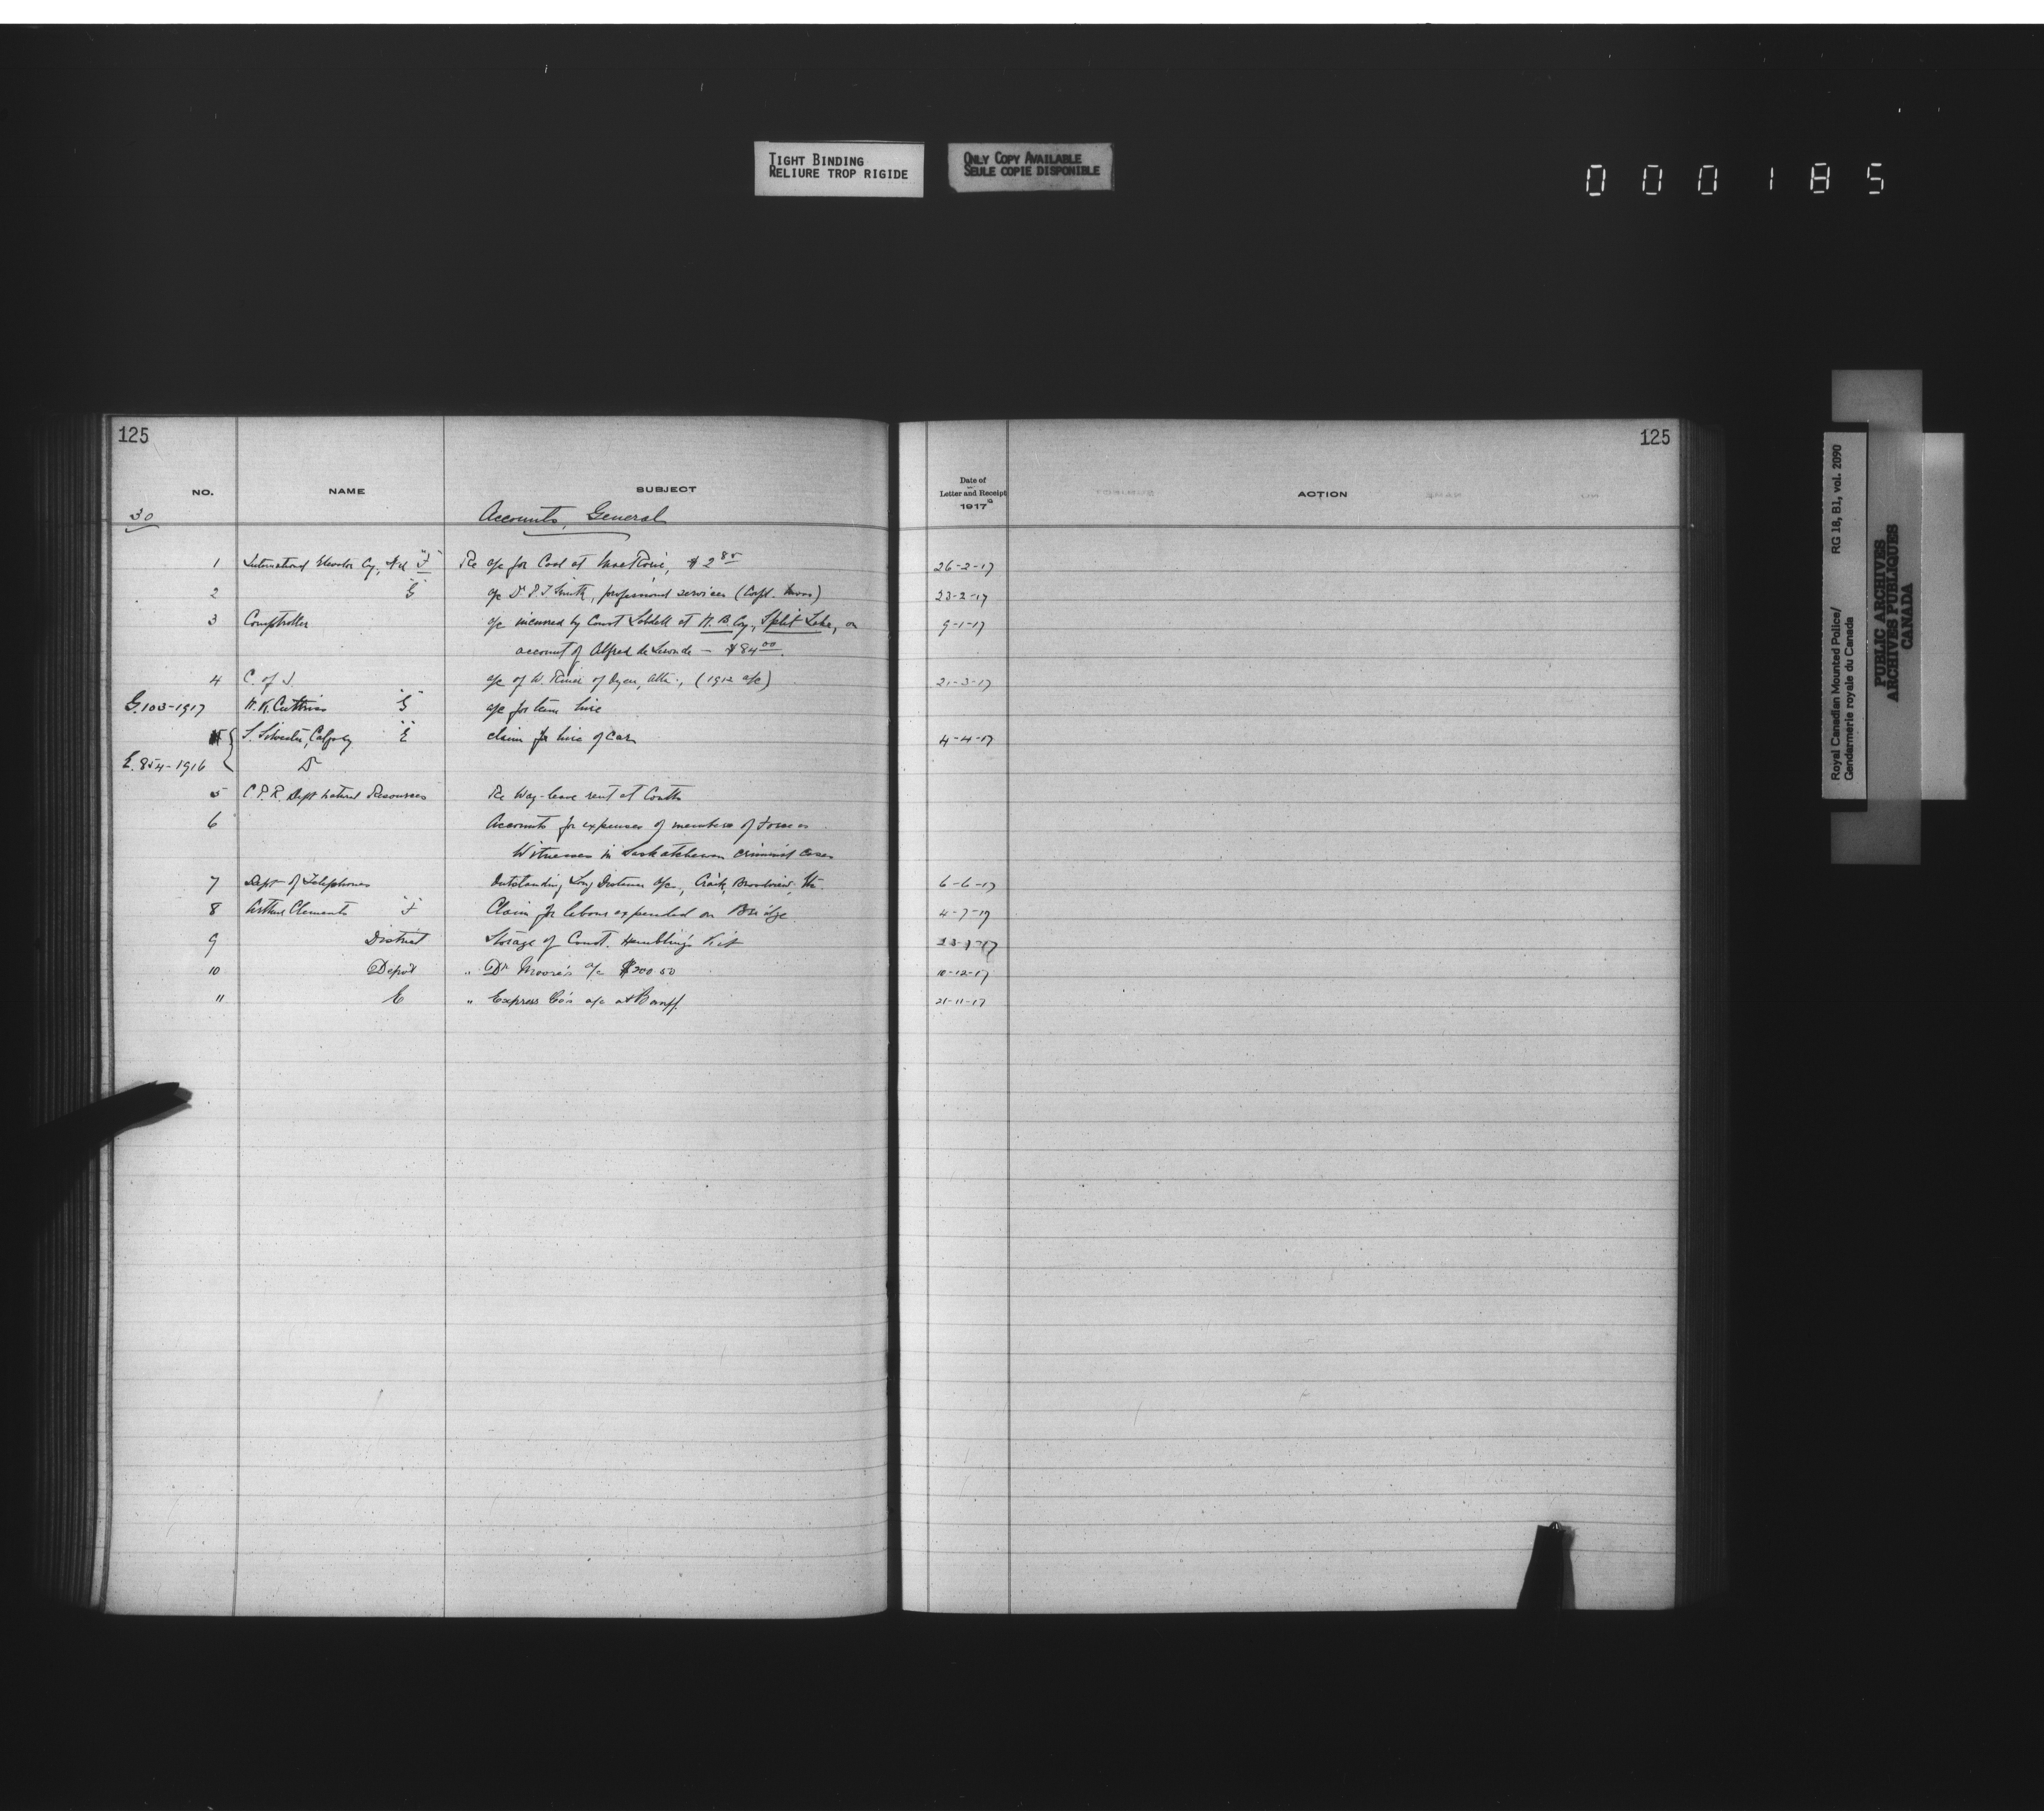 TIGHT BINDING
RELIURE TROP RIGIDE
ONLY COPY AVAILABLE
SEULE COPIE DISPONIBLE
000185
125
NO. NAME SUBJECT
30 Accounts, General
1 International Elevator Co'y, "F" Re a/c for Coal at $2.85
2 "G" a/c Dr P.J. Smith, professional services (Corpl. )
3 Comptroller a/c incurred by Const Lobdell at H.B. Coy, Split Lake, on
account of Alfred de - $84.00.
4 C. of I. a/c of W. of Oyen, Alta., (1912 a/c)
G.103-1917 "G" a/c for team hire
S. Silvester, Calgary "E" claim for hire of car
E. 854-1916 Do
5 C.P.R. Dept Natural Resources Re Way-leave rent at Coutts
6 Accounts for expenses of members of Force as
Witnesses in Saskatchewan criminal cases
7 Dept of Telephones Outstanding Long Distance a/cs, Craik, Broadview, Etc.
8 Arthur Clements "F" Claim for labour expended on Bridge
9 District Storage of Const. Hambling's Kit
10 Depôt " Dr Moore's a/c $200.50
11 E " Express Co's a/c at Banff.
125
Date of
Letter and Receipt
1917
ACTION
26-2-17
23-2-17
9-1-17
21-3-17
4-4-17
6-6-17
4-7-17
10-12-17
21-11-17
Royal Canadian Mounted Police/ RG 18, B1, vol. 2090
Gendarmerie royale du Canada
PUBLIC ARCHIVES
ARCHIVES PUBLIQUES
CANADA